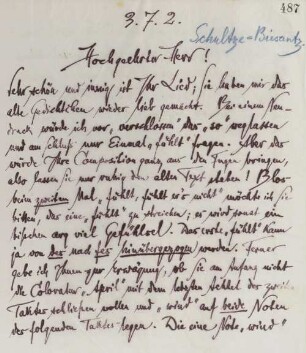 487
3. 7. 2.
Schultze-Biesantz
Hochgeehrter Herr!
Sehr schön und innig ist Ihr Lied; Sie haben mir das
alte Gedichtchen wieder lieb gemacht. Bei einem Neu-
druck würde ich vor „verschlossen“ das „so“ weglassen
und am Schluß nur Einmal „fühlt“ sagen. Aber das
würde Ihre Composition ganz aus den Fugen bringen,
also lassen Sie nur ruhig den alten Text stehen! Blos
beim zweiten Mal, „fühlt, fühlt er's nicht“ möchte ich Sie
bitten, das eine „fühlt“ zu streichen; es wird sonst ein
bischen arg viel Gefühlsel. Das erste „fühlt“ kann
ja von der nach fis hinübergezogen werden. Ferner
gebe ich Ihnen zur Erwägung, ob Sie am Anfang nicht
die Coloratur „April“ mit dem letzten Achtel des zweiten
Taktes schließen wollen und „wird“ auf beide Noten
des folgenden Taktes legen. Die eine Note „wird“